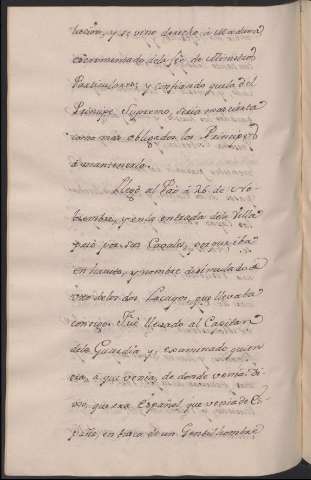 tacion, y se vino derecho, à Madama
escarmentado de la fee de Ministros
Particulares, y confiando que la del
Principe Supremo, seria mas cierta
como mas obligados los Principes
à mantenerla.
Llegò al Pao à 26 de No-
biembre, y en la entrada de la Villa
pasò por sus Casales, porque iba
en havito, y nombre disimulado de
uno de los dos Lacayos, que llevaba
consigo. Fuè llevado al Capitan
de la Guardia, y, examinado quien
era, à que venia, de donde venia di-
xo, que era Español que venia de Es-
paña, en busca de un Gentil hombre